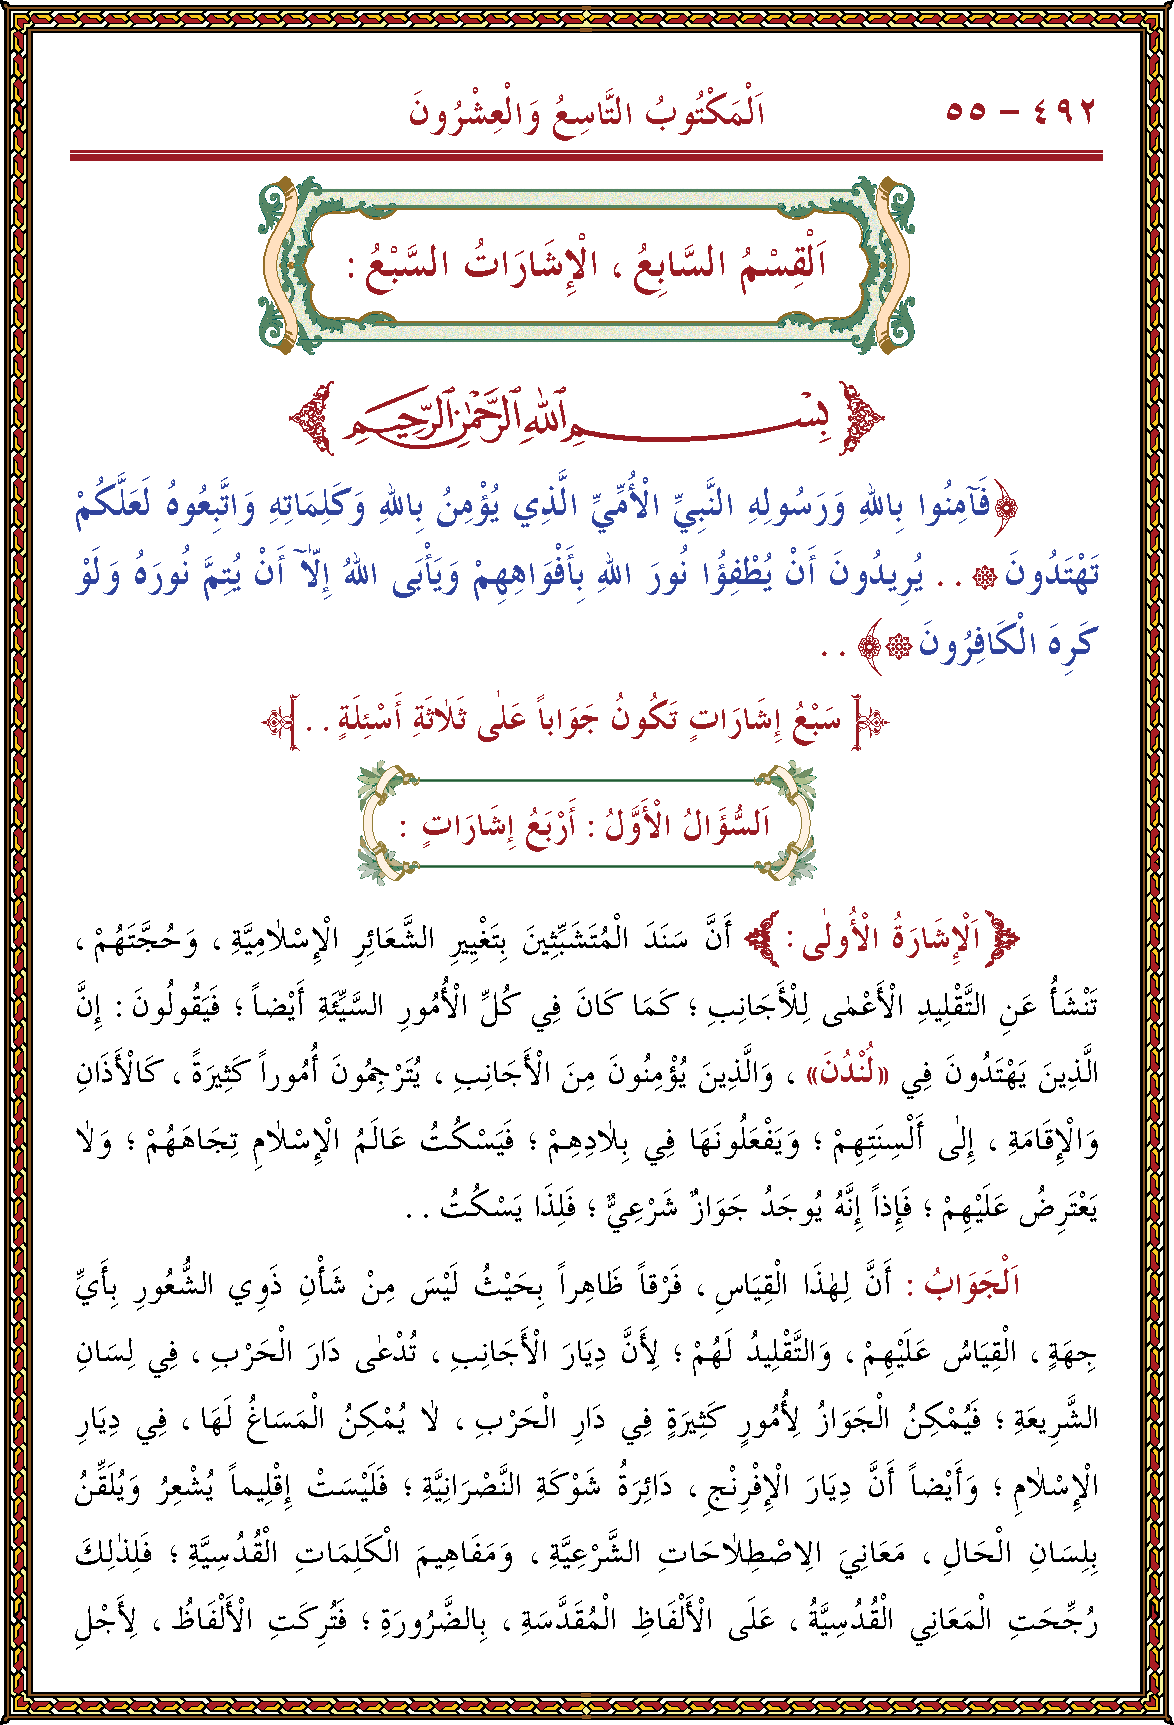 ٤٩٢ – ٥٥ اَلْمَكْتُوبُ التَّاسِعُ وَالْعِشْرُونَ
اَلْقِسْمُ السَّابِعُ ، الْإِشَارَاتُ السَّبْعُ :
بِسْمِ اللهِ الرَّحْمٰنِ الرَّحِيمِ
﴿فَآمِنُوا بِاللهِ وَرَسُولِهِ النَّبِيِّ الْأُمِّيِّ الَّذِي يُؤْمِنُ بِاللهِ وَكَلِمَاتِهِ وَاتَّبِعُوهُ لَعَلَّكُمْ
تَهْتَدُونَ ۞ . . يُرِيدُونَ أَنْ يُطْفِؤُا نُورَ اللهِ بِأَفْوَاهِهِمْ وَيَأْبَى اللهُ إِلَّآ أَنْ يُتِمَّ نُورَهُ وَلَوْ
كَرِهَ الْكَافِرُونَ ۞﴾ . .
[سَبْعُ إِشَارَاتٍ تَكُونُ جَوَاباً عَلٰى ثَلاٰثَةِ أَسْئِلَةٍ . .]
اَلسُّؤَالُ الْأَوَّلُ : أَرْبَعُ إِشَارَاتٍ :
﴿اَلْإِشَارَةُ الْأُولٰى :﴾ أَنَّ سَنَدَ الْمُتَشَبِّثِينَ بِتَغْيِيرِ الشَّعَائِرِ الْإِسْلاٰمِيَّةِ ، وَحُجَّتَهُمْ ،
تَنْشَأُ عَنِ التَّقْلِيدِ الْأَعْمٰى لِلْأَجَانِبِ ؛ كَمَا كَانَ فِي كُلِّ الْأُمُورِ السَّيِّئَةِ أَيْضاً ؛ فَيَقُولُونَ : إِنَّ
الَّذِينَ يَهْتَدُونَ فِي «لُنْدُنَ» ، وَالَّذِينَ يُؤْمِنُونَ مِنَ الْأَجَانِبِ ، يُتَرْجِمُونَ أُمُوراً كَثِيرَةً ، كَالْأَذَانِ
وَالْإِقَامَةِ ، إِلٰى أَلْسِنَتِهِمْ ؛ وَيَفْعَلُونَهَا فِي بِلاٰدِهِمْ ؛ فَيَسْكُتُ عَالَمُ الْإِسْلاٰمِ تِجَاهَهُمْ ؛ وَلاٰ
يَعْتَرِضُ عَلَيْهِمْ ؛ فَإِذاً إِنَّهُ يُوجَدُ جَوَازٌ شَرْعِيٌّ ؛ فَلِذَا يَسْكُتُ . .
اَلْجَوَابُ : أَنَّ لِهٰذَا الْقِيَاسِ ، فَرْقاً ظَاهِراً بِحَيْثُ لَيْسَ مِنْ شَأْنِ ذَوِي الشُّعُورِ بِأَيِّ
جِهَةٍ ، الْقِيَاسُ عَلَيْهِمْ ، وَالتَّقْلِيدُ لَهُمْ ؛ لِأَنَّ دِيَارَ الْأَجَانِبِ ، تُدْعٰى دَارَ الْحَرْبِ ، فِي لِسَانِ
الشَّرِيعَةِ ؛ فَيُمْكِنُ الْجَوَازُ لِأُمُورٍ كَثِيرَةٍ فِي دَارِ الْحَرْبِ ، لاٰ يُمْكِنُ الْمَسَاغُ لَهَا ، فِي دِيَارِ
الْإِسْلاٰمِ ؛ وَأَيْضاً أَنَّ دِيَارَ الْإِفْرِنْجِ ، دَائِرَةُ شَوْكَةِ النَّصْرَانِيَّةِ ؛ فَلَيْسَتْ إِقْلِيماً يُشْعِرُ وَيُلَقِّنُ
بِلِسَانِ الْحَالِ ، مَعَانِيَ الاِصْطِلاٰحَاتِ الشَّرْعِيَّةِ ، وَمَفَاهِيمَ الْكَلِمَاتِ الْقُدُسِيَّةِ ؛ فَلِذٰلِكَ
رُجِّحَتِ الْمَعَانِي الْقُدُسِيَّةُ ، عَلَى الْأَلْفَاظِ الْمُقَدَّسَةِ ، بِالضَّرُورَةِ ؛ فَتُرِكَتِ الْأَلْفَاظُ ، لِأَجْلِ